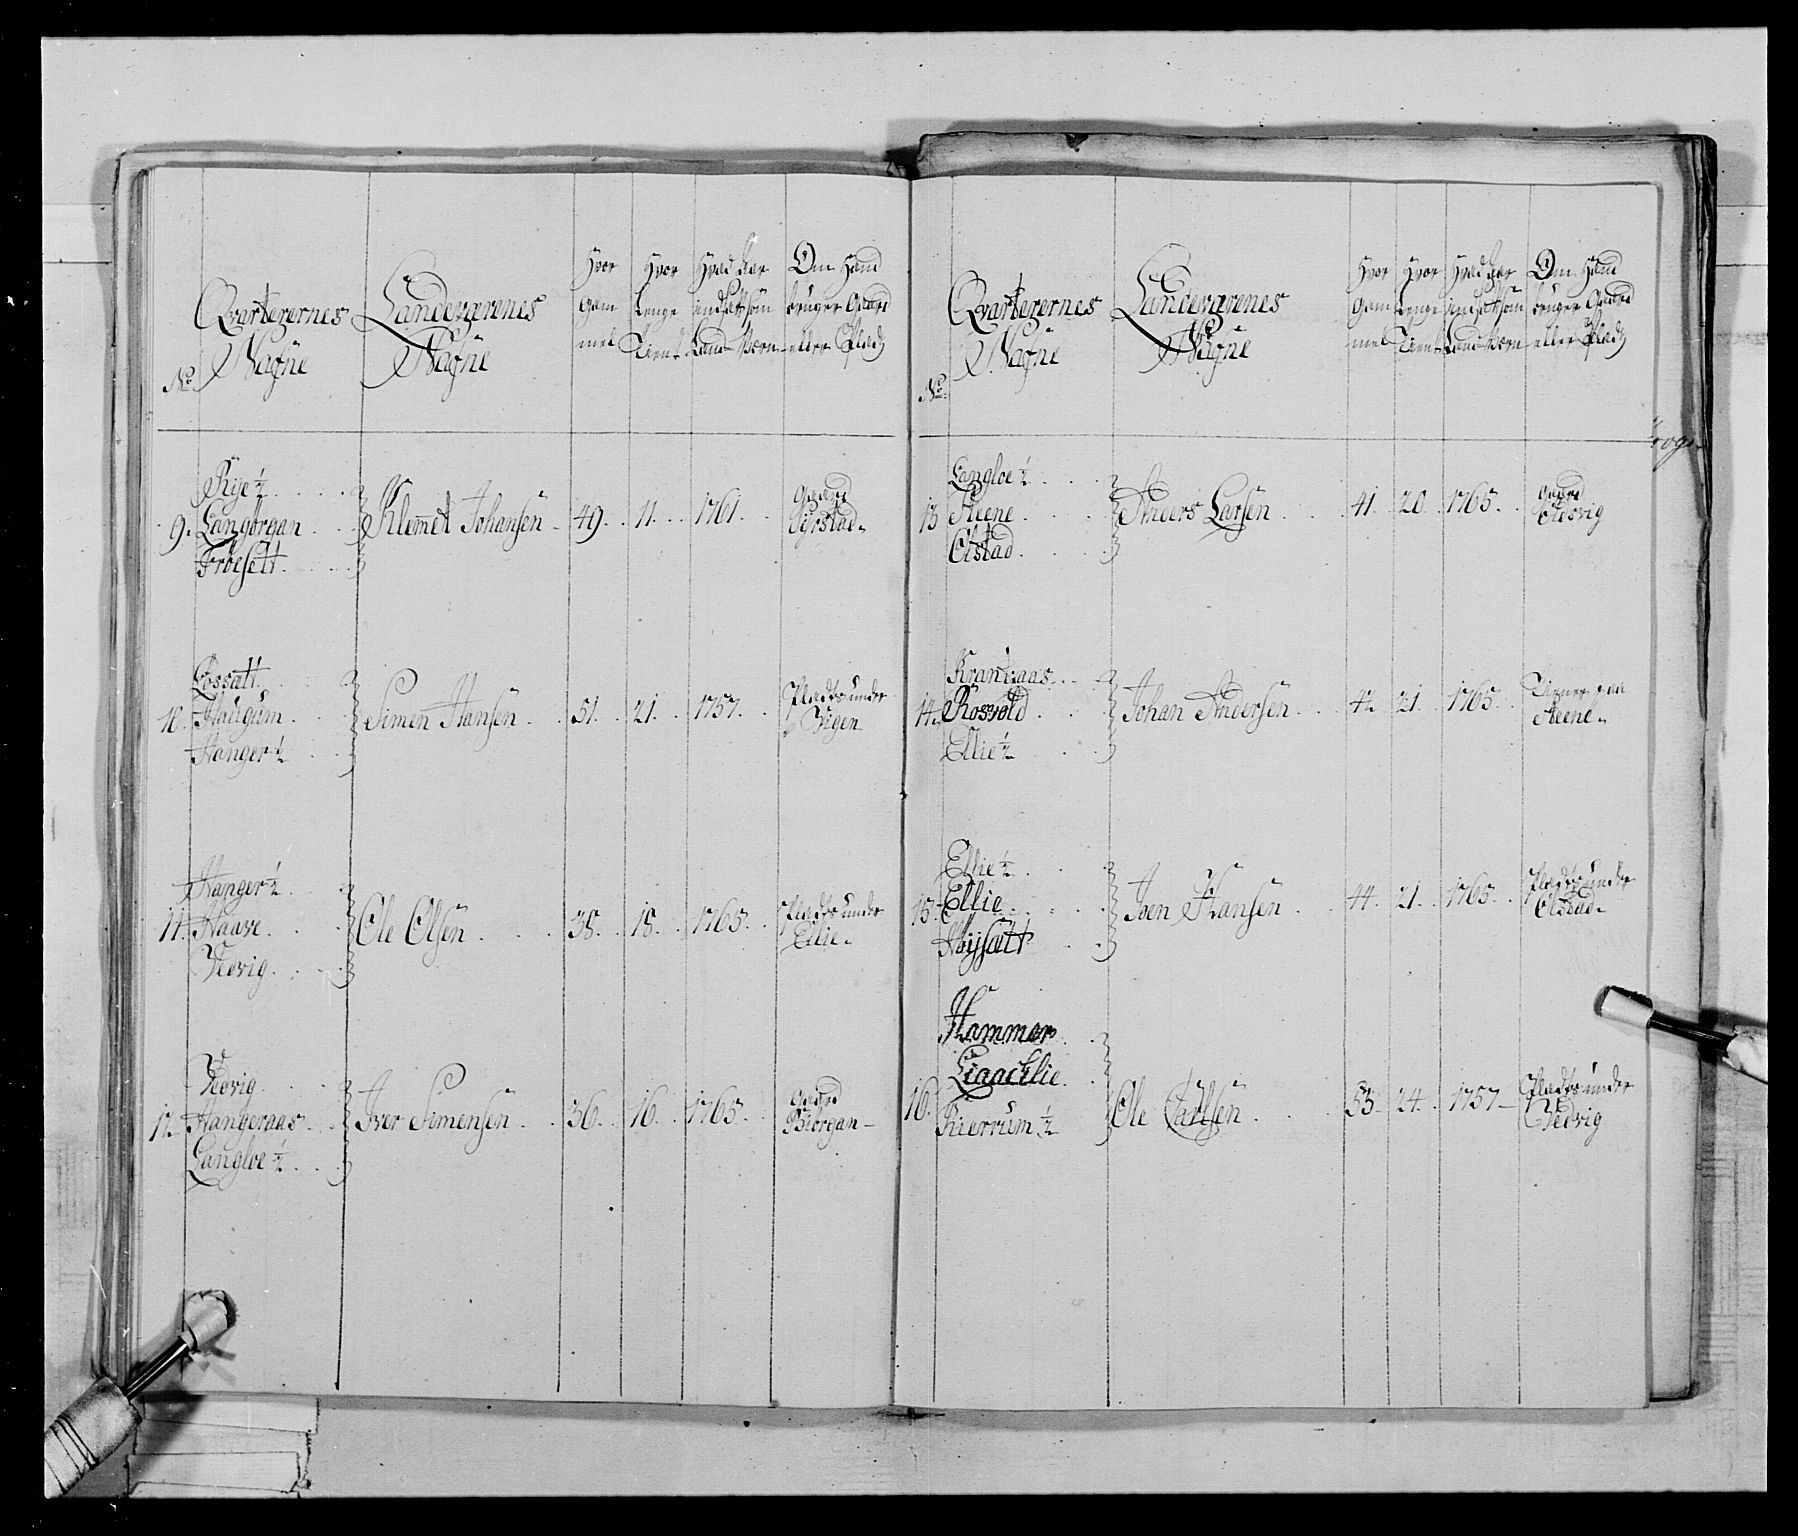 No
Qvarterernes
Nafne
Landeværenes
Nafne
Hvor
Gam
mel
Hvor
Lenge
Tient
Hvad Aar
indsat som
Land-Vern
Om Hand
bruger Gaard
eller Plads
9. Rye ½
Langørgan
Trøesett
Klemet Johansen 49. 11. 1761.
Gaard
Gyrstad
10. Fossætt
Haugum
Hanger ½
Simen Hansen 51. 21. 1757.
Pladts under
Vigen
11. Hanger ½
Haave
Vedvig
Ole Olsen 38. 18. 1765.
Pladts under
Ellie
12. Vedvig
Hangeraas
Langloe ½
Iver Simensen 36. 16. 1765.
Gaard
Biørgan
No
Qvarterernes
Nafne
Landeværenes
Nafne
Hvor
Gam
mel
Hvor
Lenge
Tient
Hvad Aar
indsat som
Land-Vern
Om Hand
bruger Gaard
eller Plads
13 Langloe ½
Steene
Olstad
Anders Larsen 41. 20. 1765.
Gaard
Vedsvig
14. Krantaas
Rosvold
Ellie ½
Johan Andersen 42. 21. 1765.
Tiener paa
Steene
15. Ellie ½
Ellie
Høysætt
Joen Hansen 44. 21. 1765.
Pladts under
Olstad
16. Hammer
Liaacklie
Kierrum ½
Ole Carlsen 53. 24. 1757
Pladts under
Vedvig